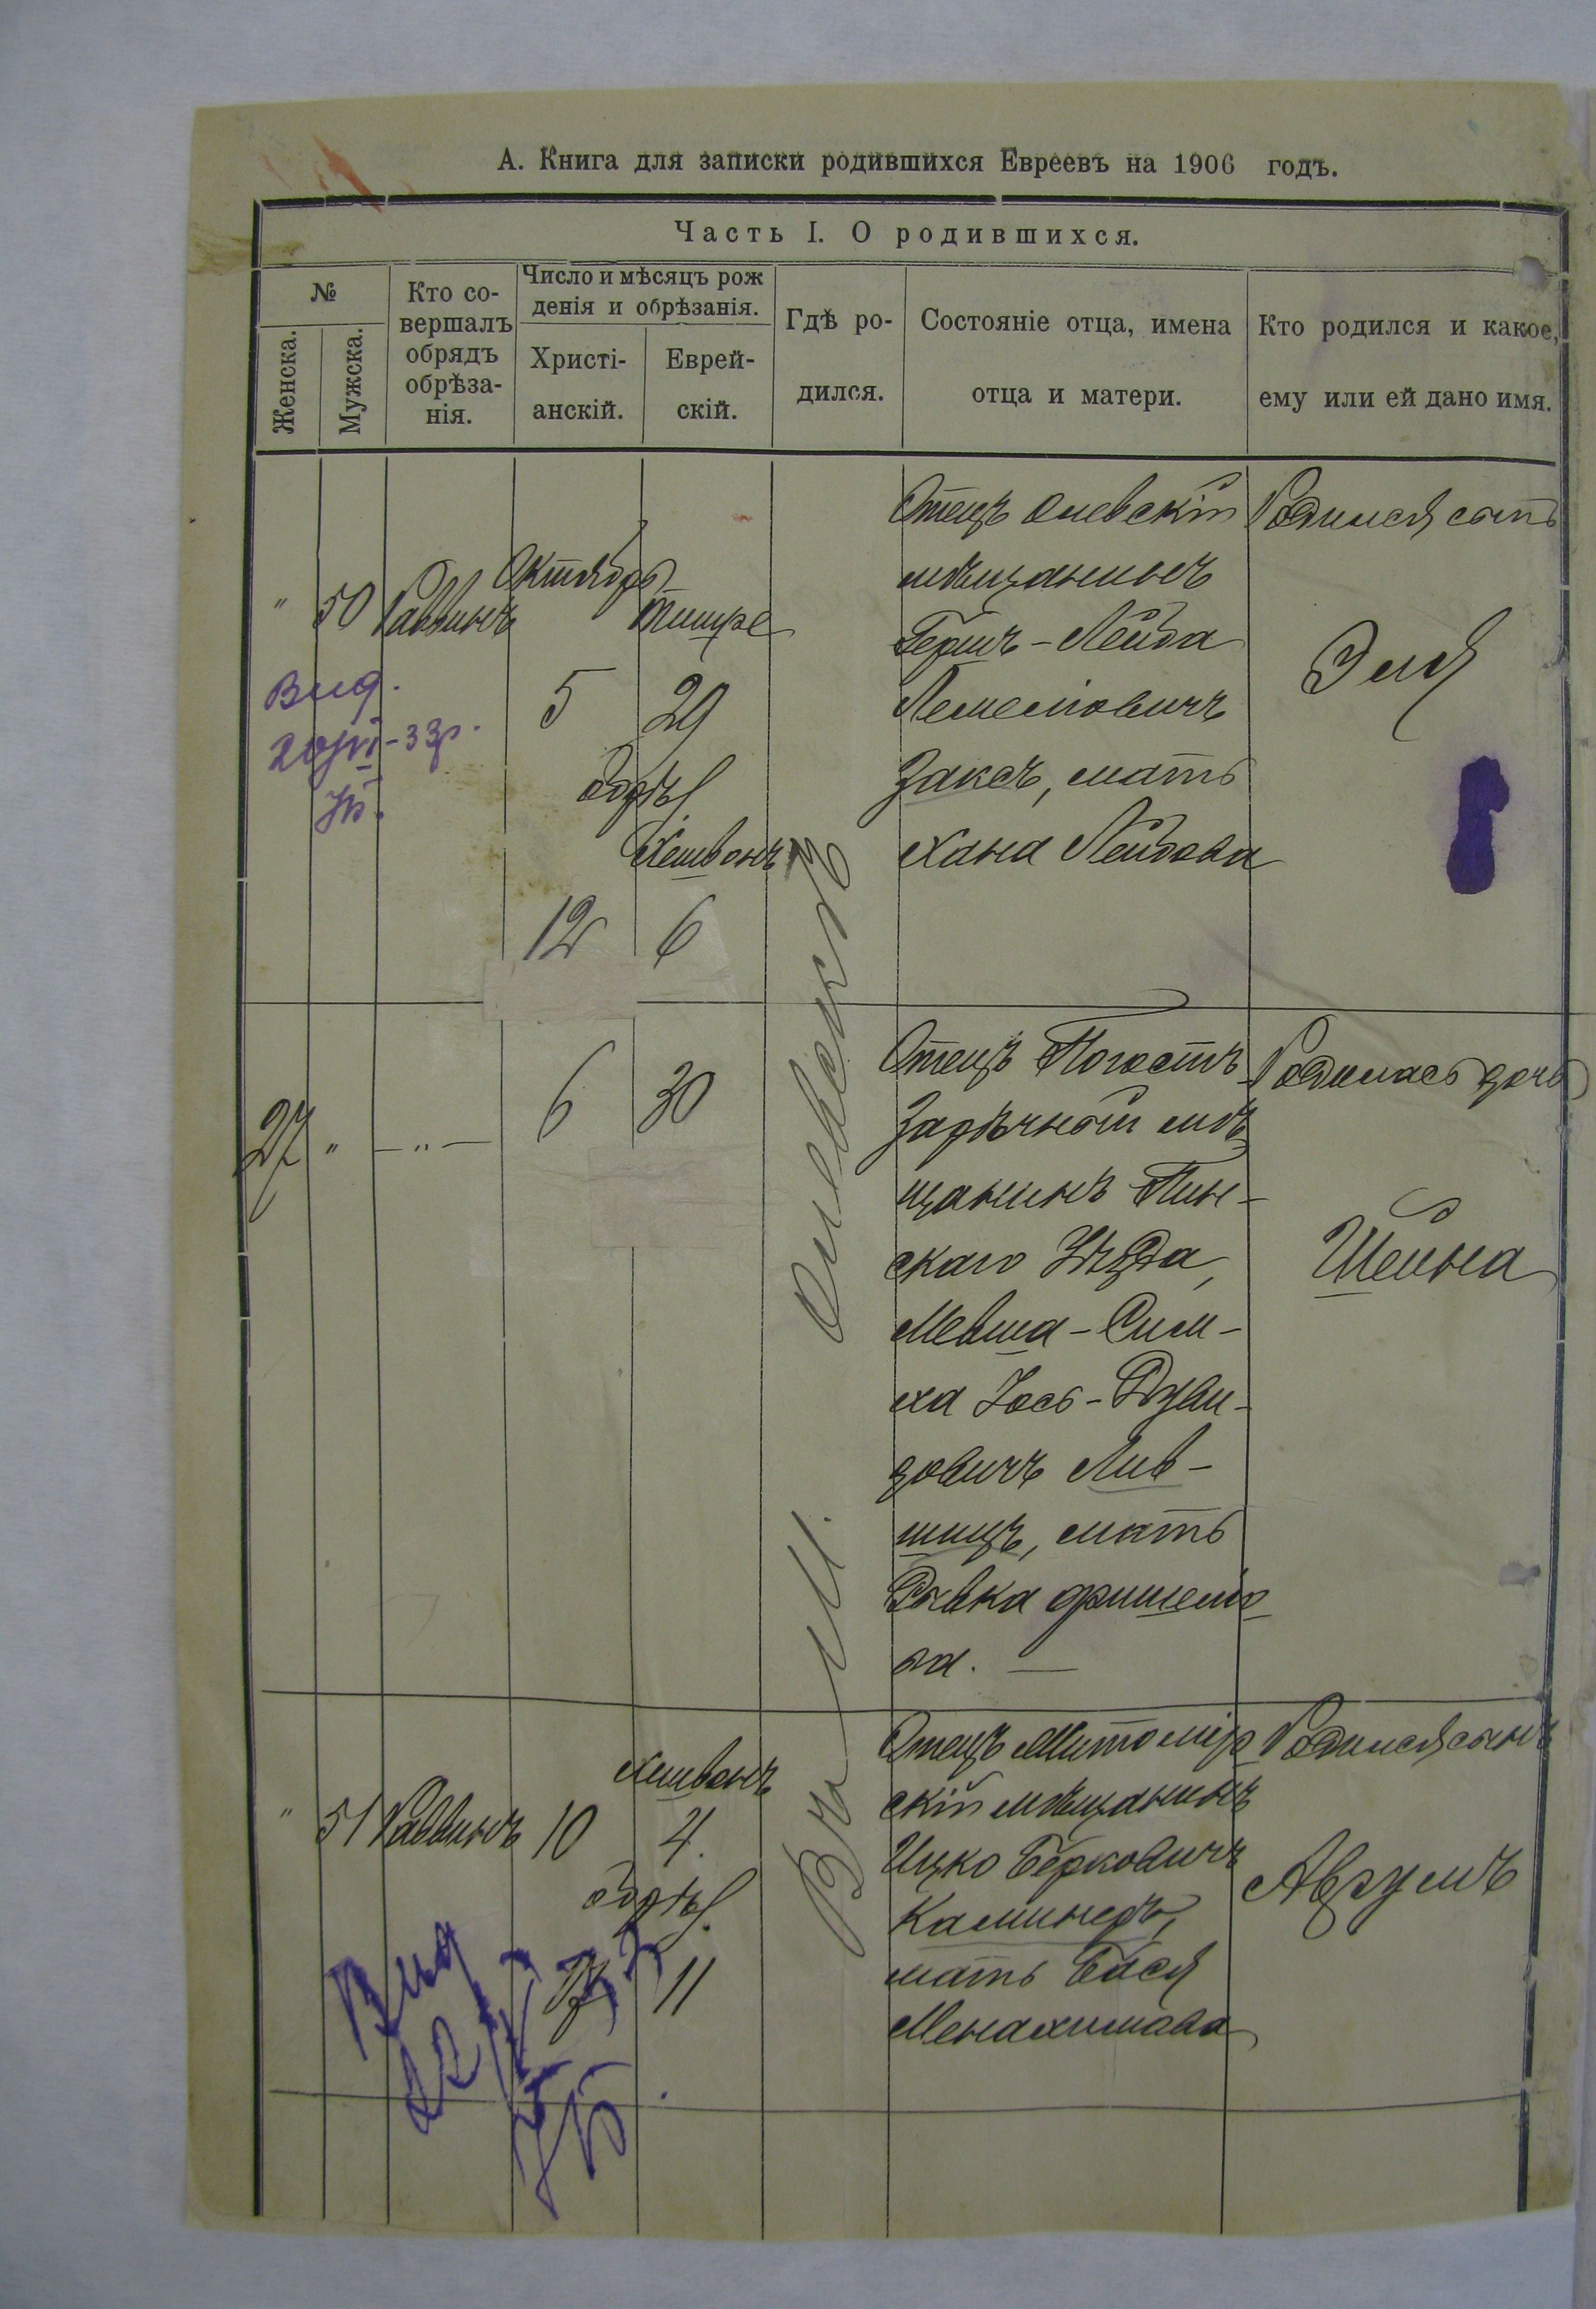 А. Книга для записки родившихся Евреевъ на 1906 годъ.
Часть I. О родившихся.
№
Женска.
Мужска.
Кто со-
вершалъ
обрядъ
обрѣза-
нія.
Число и мѣсяцъ рож
денія и обрѣзанія.
Христі-
анскій.
Еврей-
скій.
Гдѣ ро-
дился.
Состояніе отца, имена
отца и матери.
Кто родился и какое,
ему или ей дано имя.
" 50 Раввинъ
Октябрь
Тишре
5 29
обрѣ.
Хешвонъ
12 6
Вид.
Въ м. Олевскъ
Отецъ Олевскій
мѣщанинъ
Гершъ-Лейба
Лемелiовичъ
Заксъ, мать
Хана Лейбова
Родился сынъ
Эля
27 " — " —
6 30
Отецъ Погостъ
Зарѣчный мѣ
щанинъ Пин-
скаго Уѣзда,
Мевша-Сим-
ха Іось-Дзви-
довичъ Лив-
шицъ, мать
Рывка
ва. —
Родилась дочь
Шейна
" 51 Раввинъ 10
Хешвонъ
4.
обрѣ.
17 11
Вид
Отецъ Житомір
скій мѣщанинъ
Ицко Берковичъ
Каминеръ,
мать Бася
Менахимова
Родился сынъ
Аврумъ